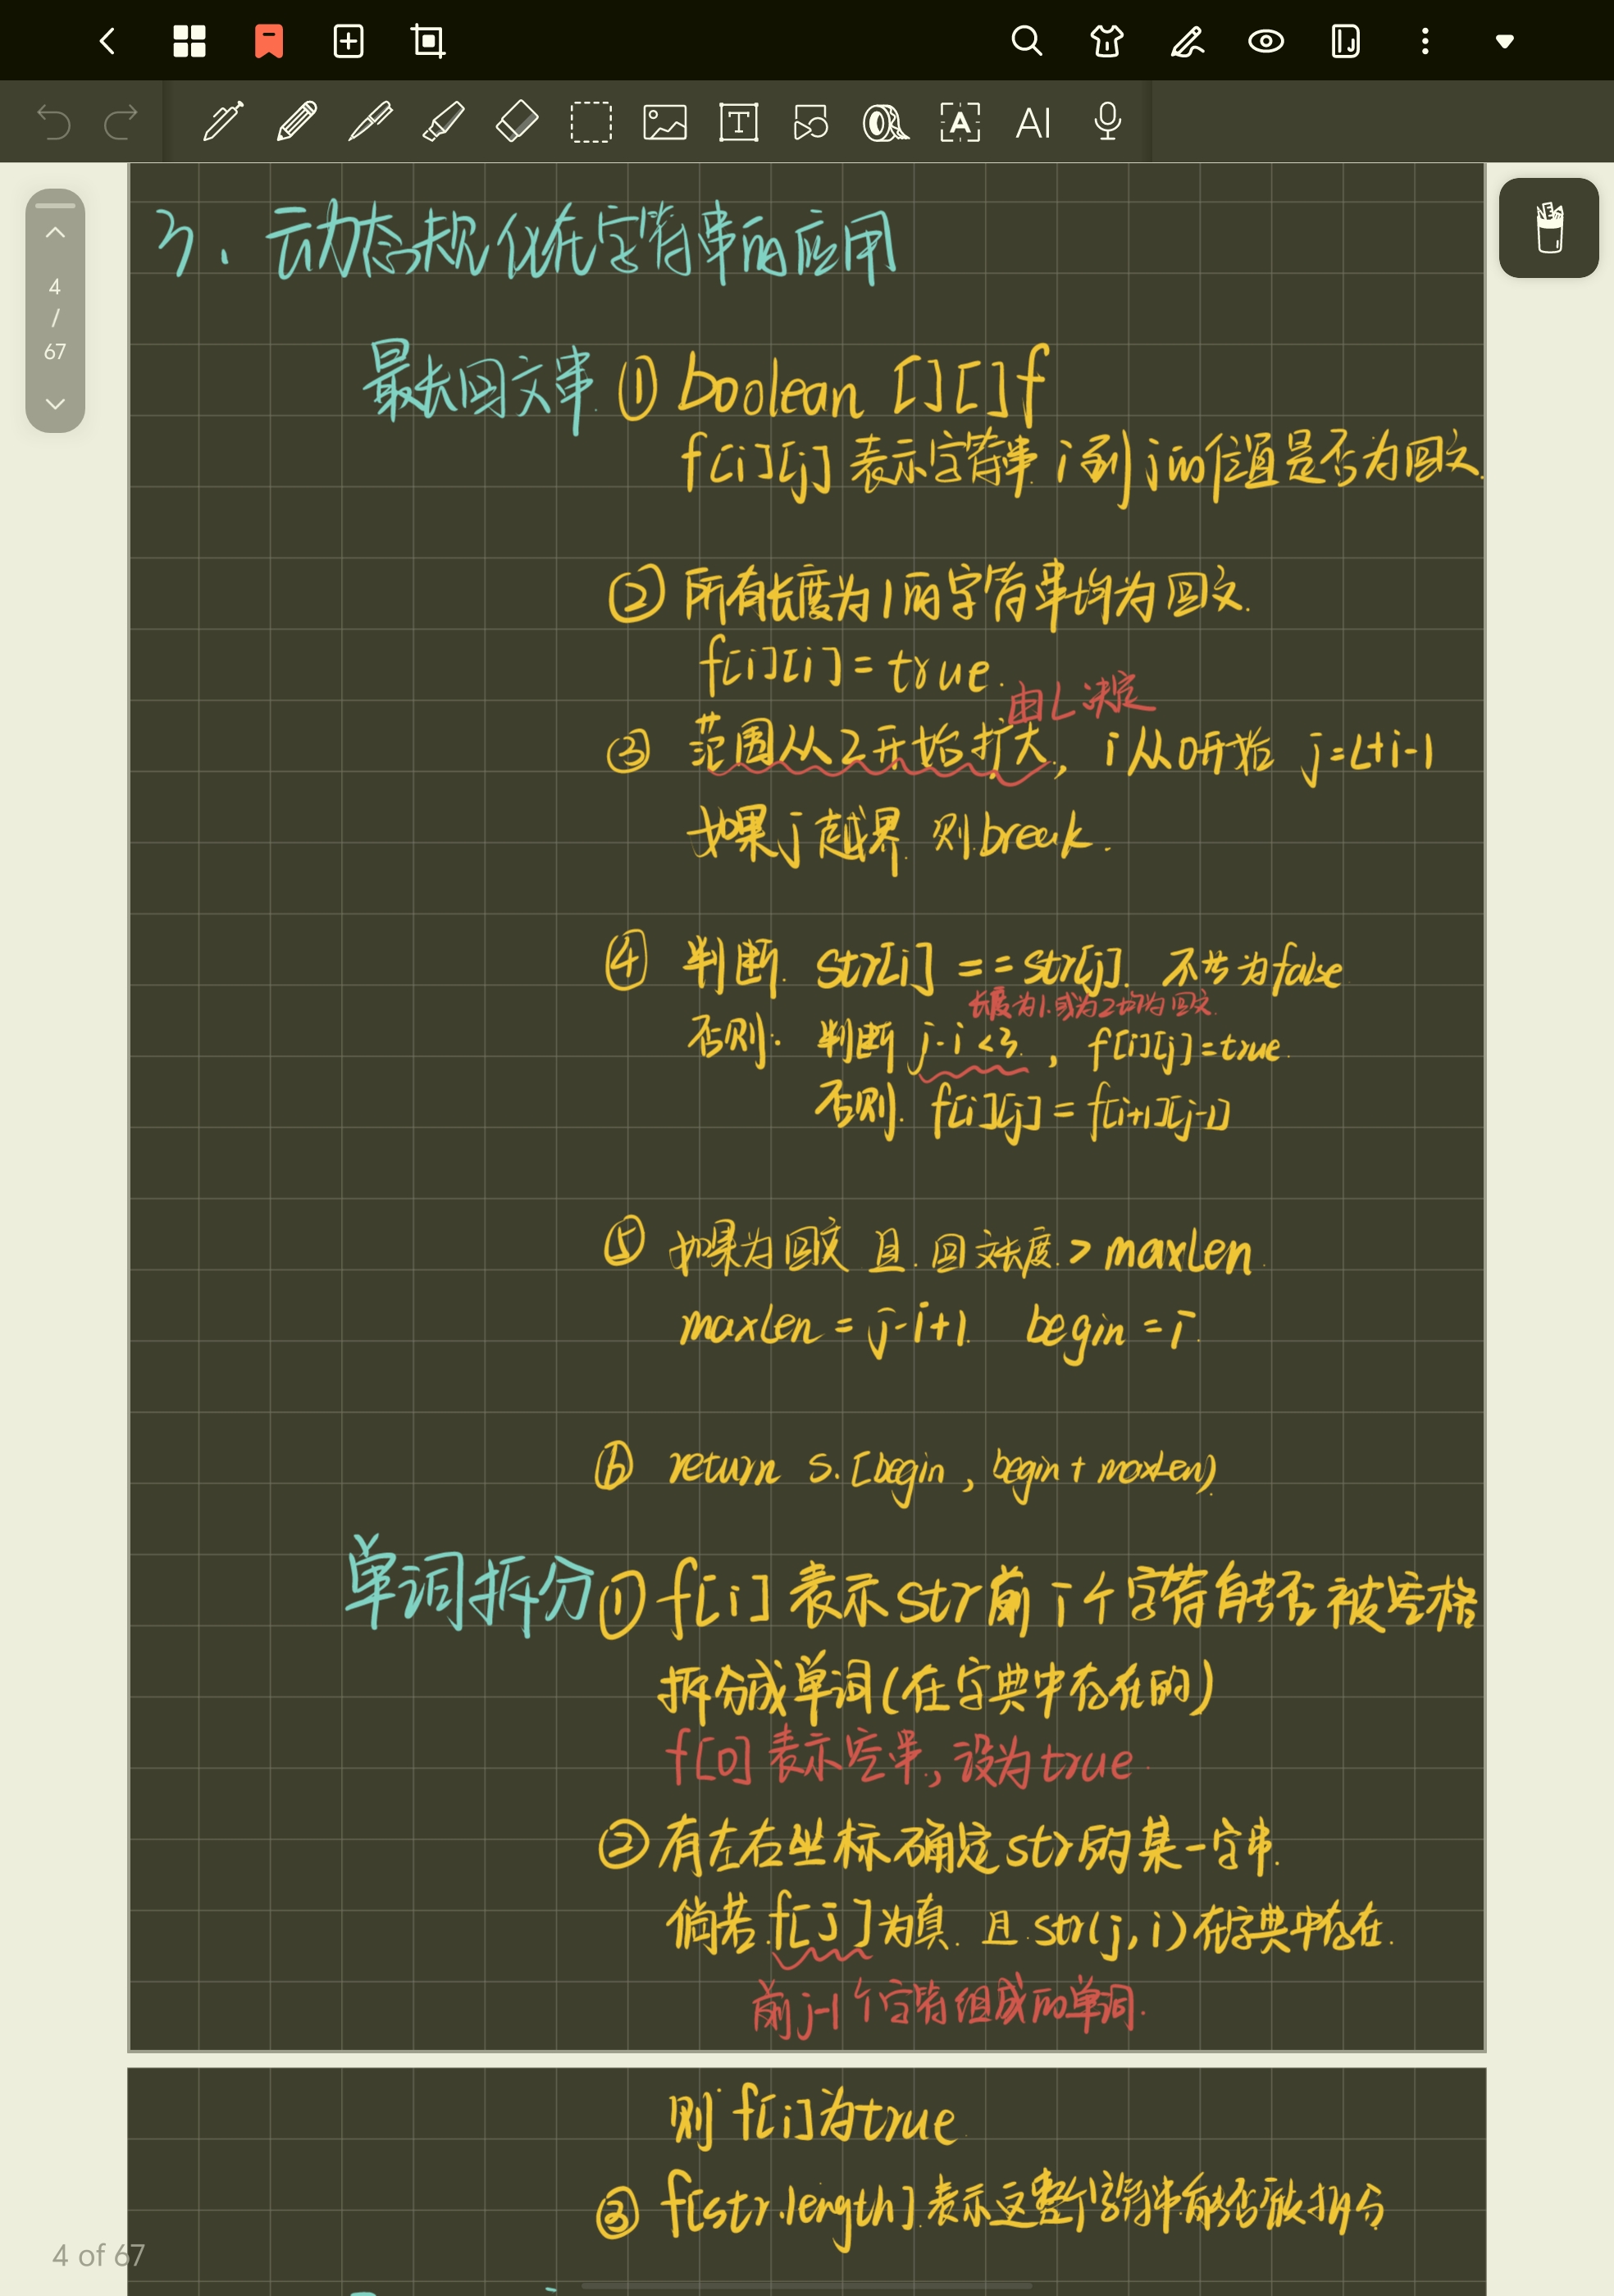 AI
4
/
67
3、动态规化在字符串的应用
最长回文串 ① boolean [][]f
f[i][j] 表示字符串 i 到 j 的位置是否为回文.
② 所有长度为1的字符串均为回文.
f[i][i] = true.
由L决定
③ 范围从2开始扩大, i从0开始 j=L+i-1
如果j越界 则break.
④ 判断 str[i] == str[j]. 不等为false
长度为1.或为2均为回文.
否则: 判断 j-i<3, f[i][j]=true
否则. f[i][j] = f[i+1][j-1]
⑤ 如果为回文 且. 回文长度 > maxLen
maxLen = j-i+1 begin = i
⑥ return s.[begin, begin + maxLen)
单词拆分 ① f[i] 表示str前i个字符能否被空格
拆分成单词(在字典中存在的)
f[0]表示空串,设为true
② 有左右坐标确定str的某一字串.
倘若f[j]为真. 且str(j,i)在字典中存在.
前j-1个字符组成的单词.
则 f[i]为true
③ f[str.length]表示这整个字符串能否被拆分
4 of 67